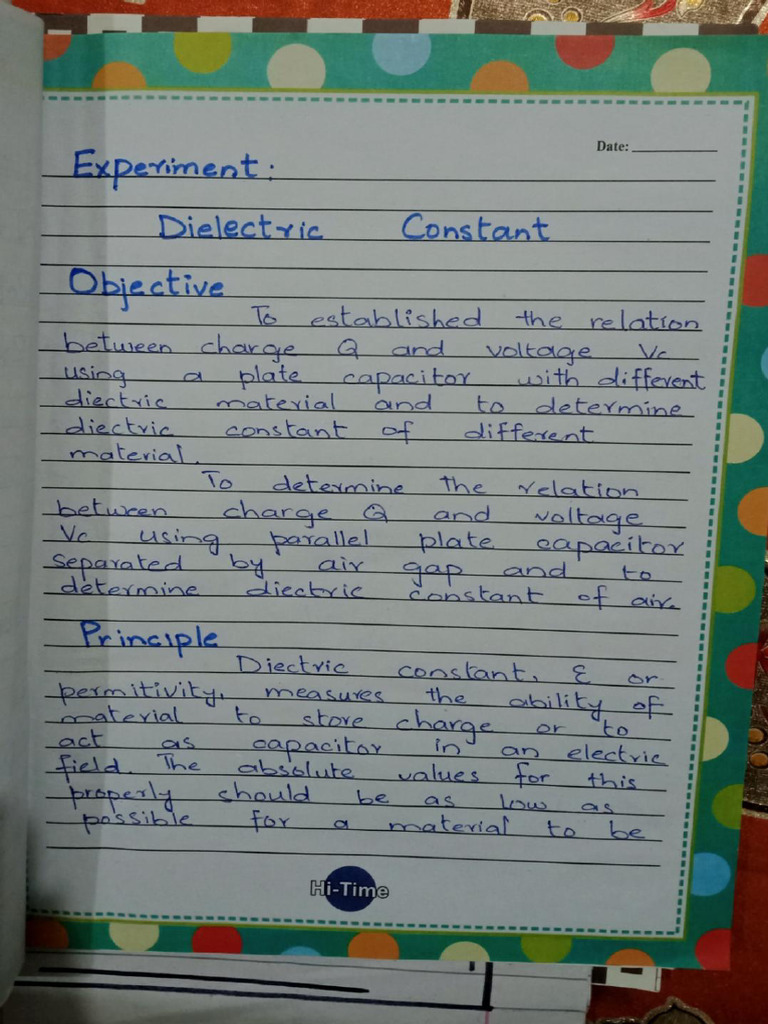 Date:
Experiment:
Dielectric Constant
Objective
To established the relation
between charge Q and voltage Vc
using a plate capacitor with different
diectric material and to determine
diectric constant of different
material.
To determine the relation
between charge Q and voltage
Vc using parallel plate capacitor
separated by air gap and to
determine diectric constant of air.
Principle
Diectric constant, ε or
permitivity, measures the ability of
material to store charge or to
act as capacitor in an electric
field. The absolute values for this
properly should be as low as
possible for a material to be
Hi-Time